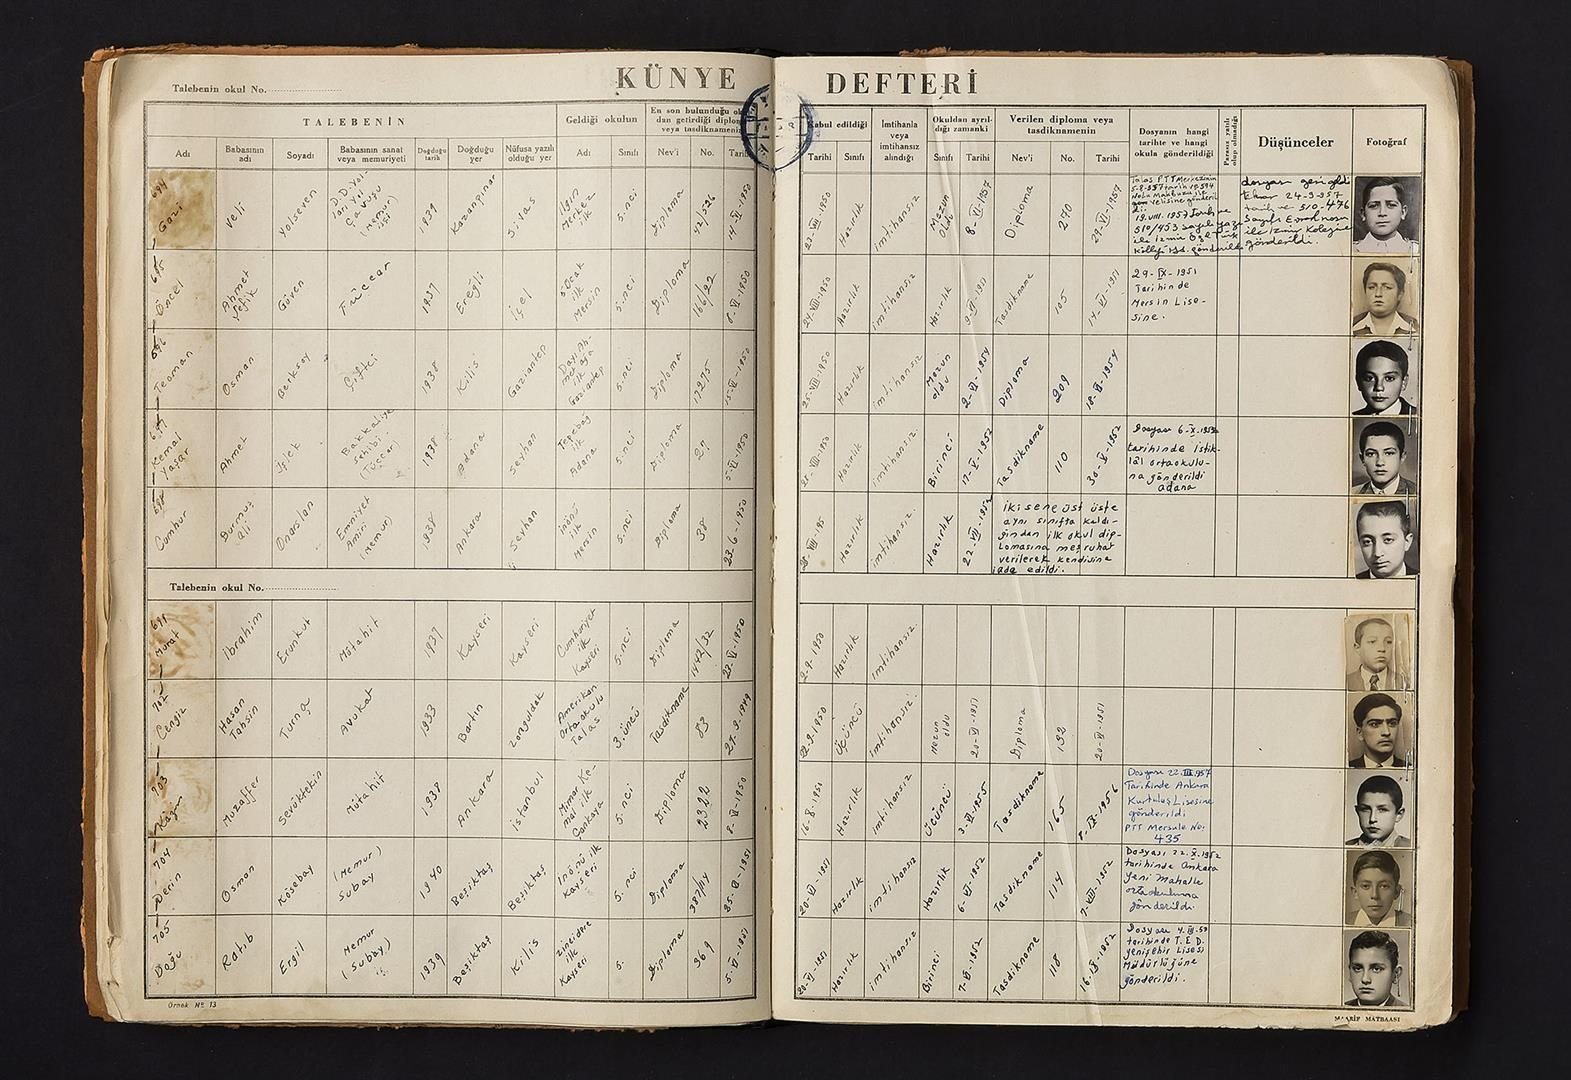 KÜNYE DEFTERİ
Talebenin okul No.
TALEBENİN
Geldiği okulun
En son bulunduğu okuldan getirdiği diploma veya tasdiknamenin
Kabul edildiği
İmtihanla veya imtihansız alındığı
Okuldan ayrıldığı zamanki
Verilen diploma veya tasdiknamenin
Dosyanın hangi tarihte ve hangi okula gönderildiği
Parasız yatılı olup olmadığı
Düşünceler
Fotoğraf
Adı
Babasının adı
Soyadı
Babasının sanat veya memuriyeti
Doğduğu tarih
Doğduğu yer
Nüfusa yazılı olduğu yer
Adı
Sınıfı
Nev'i
No.
Tarihi
Tarihi
Sınıfı
Sınıfı
Tarihi
Nev'i
No.
Tarihi
694 Gazi Veli Yolseven 1939 Kazanpınar Sivas Ilgın Merkez ilk 5.nci Diploma 12/526 14-VI-1950
23-VIII-1950 Hazırlık imtihansız Mezun oldu 8-VI-1957 Diploma 270 29-VI-1957
695 Öncel Ahmet Şefik Göven Tüccar 1937 Ereğli İçel 3-Ocak ilk Mersin 5.nci Diploma 16/22 8-VI-1950
24-VIII-1950 Hazırlık imtihansız Hazırlık 9-VI-1951 Tasdikname 105 14-VI-1951
29-IX-1951
Tarihinde
Mersin Lise-
sine.
696 Teoman Osman Berksoy Çiftçi 1938 Kilis Gaziantep Dayı Ahmet ağa ilk Gaziantep 5.nci Diploma 17275 15-VI-1950
25-VIII-1950 Hazırlık imtihansız Mezun oldu 2-VI-1954 Diploma 209 18-VI-1954
697 Kemal Yaşar Ahmet Bakkaliye sahibi (Tüccar) 1938 Adana Seyhan Tepebağ ilk Adana 5.nci Diploma 27 5-VI-1950
25-VIII-1950 Hazırlık imtihansız. Birinci 17-V-1952 Tasdikname 110 30-V-1952
Dosyası 6-X-1952
tarihinde İstik-
lâl ortaokulu-
na gönderildi
Adana
698 Cumhur Durmuş Ali Onarslan Emniyet Amiri (Memur) 1938 Ankara Seyhan İnönü ilk Mersin 5.nci Diploma 38 23-6-1950
28-VIII-195 Hazırlık imtihansız. Hazırlık 22-VII-1952
iki sene üst üste
aynı sınıfta kaldı-
ğından ilk okul dip-
lomasına meşruhat
verilerek kendisine
iade edildi.
Talebenin okul No.
Murat İbrahim Erunkut Mütahit 1937 Kayseri Kayseri Cumhuriyet ilk Kayseri 5.nci Diploma 1442/32 22-VI-1950
2-9-1950 Hazırlık imtihansız.
702 Cengiz Hasan Tahsin Turna Avukat 1933 Bartın Zonguldak Amerikan Ortaokulu Talas 3.üncü Tasdikname 83 27-9-1949
22-9-1950 Üçüncü imtihansız. Mezun oldu 20-VI-1951 Diploma 192 20-VI-1951
703 Kâzım Muzaffer Sevüktekin Mütahit 1938 Ankara İstanbul Mimar Kemal ilk Çankaya 5.nci Diploma 2322 8-VI-1950
16-8-1951 Hazırlık imtihansız Üçüncü 3-VI-1955 Tasdikname 165 8-IX-1956
Tarihinde Ankara
Kurtuluş Lisesine
gönderildi
PTT Mersule No:
435
704 Derin Osman Kösebay (Memur) Subay 1940 Beşiktaş Beşiktaş İnönü ilk Kayseri 5.nci Diploma 381/14
20-VI-1951 Hazırlık imtihansız Hazırlık 6-VI-1952 Tasdikname 114 7-VIII-1952
Dosyası 22-X-1952
tarihinde Ankara
yeni Mahalle
ortaokuluna
gönderildi.
705 Doğu Ratıb Ergil Memur (Subay) 1939 Beşiktaş Kilis Zincidere ilk Kayseri 5. Diploma 369 5-VI-1951
20-VI-1951 Hazırlık imtihansız Birinci 7-VI-1952 Tasdikname 118 16-IX-1952
tarihinde T.E.D.
yenişehir Lisesi
Müdürlüğüne
gönderildi.
Örnek No. 13
MAARİF MATBAASI